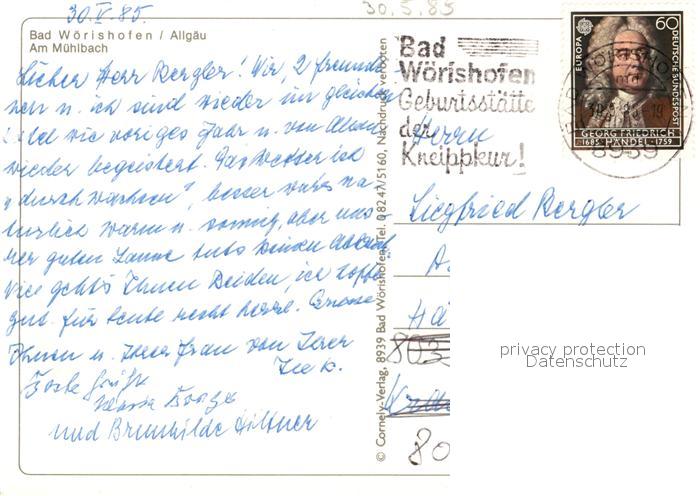 30.V.85.
30.5.85
Bad Wörishofen / Allgäu
Am Mühlbach
Lieber Herr Bergler! Wir, 2 Freundin-
nen u. ich sind wieder im gleichen
wie voriges Jahr u. von Allem
wieder begeistert. Das Wetter ist
"durchwachsen", besser wär's na-
türlich warm u. sonnig, aber uns-
rer guten Laune tuts keinen Abbruch
Wie geht's Ihnen Beiden, ich hoffe
gut. Für heute recht herzl. Grüsse
Ihnen u. Ihrer Frau von Ihrer
Beste Grüße
und Brunhilde Hiltner
© Cornely-Verlag, 8939 Bad Wörishofen, Tel. 08247/5160, Nachdruck verboten
Bad
Wörishofen
Geburtsstätte
der
Kneippkur!
EUROPA
60
DEUTSCHE BUNDESPOST
GEORG FRIEDRICH
1685 HÄNDEL 1759
8939
Herrn
Siegfried Bergler
A
Hä
803
80
privacy protection
Datenschutz